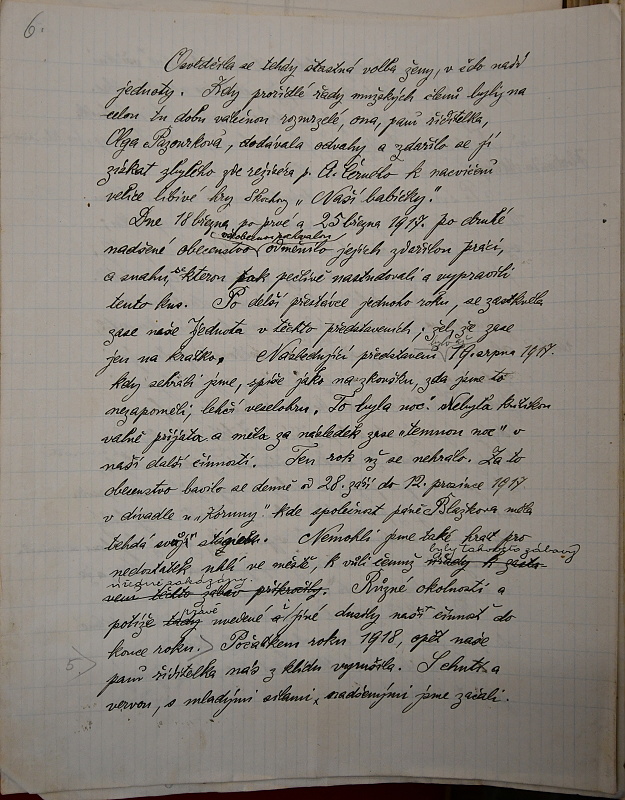 6.
Osvědčila se tehdy šťastná volba ženy, v čelo naší
jednoty. Kdy prořídlé řady mužských členů byly na
celou tu dobu válečnou rozmrzelé, ona, paní ředitelka,
Olga Pazourková, dodávala odvahy a zdařilo se jí
získat zbylého zde režiséra p. A. Černého k nacvičení
velice líbivé hry Skochy „Naší babičky."
Dne 18 března po prvé a 25 března 1917. po druhé
nadšené obecenstvo odměnilo jejich zdařilou práci,
a snahu, kterou pečlivě nastudovali a vypravili
tento kus. Po delší přestávce jednoho roku, se zaskvěla
zase naše Jednota v těchto představeních, žel, že zase
jen na krátko. Následující představení bylo až 19. srpna 1917.
kdy sehráli jsme, spíše jako na zkoušku, zda jsme to
nezapoměli, lehčí veselohru „To byla noc". Nebyla kritikou
valně přijata a měla za následek zase „temnou noc" v
naší další činnosti. Ten rok už se nehrálo. Za to
obecenstvo bavilo se denně od 28. září do 12. prosince 1917
v divadle u „Koruny" kde společnost paně Blažkova měla
tehdá svůj. Nemohli jsme také hrát pro
byly takovéto zábavy
nedostatek uhlí ve městě, k vůli čemuž úřady k zasta-
úředně zakázány.
vení těchto zábav přikročily. Různé okolnosti a
právě
potíže tehdy uvedené a jiné dusily naší činnost do
konce roku. Počátkem roku 1918, opět naše
5.
paní ředitelka nás z klidu vyrušila. S chutí a
vervou, s mladými silami, nadšenými jsme začali.